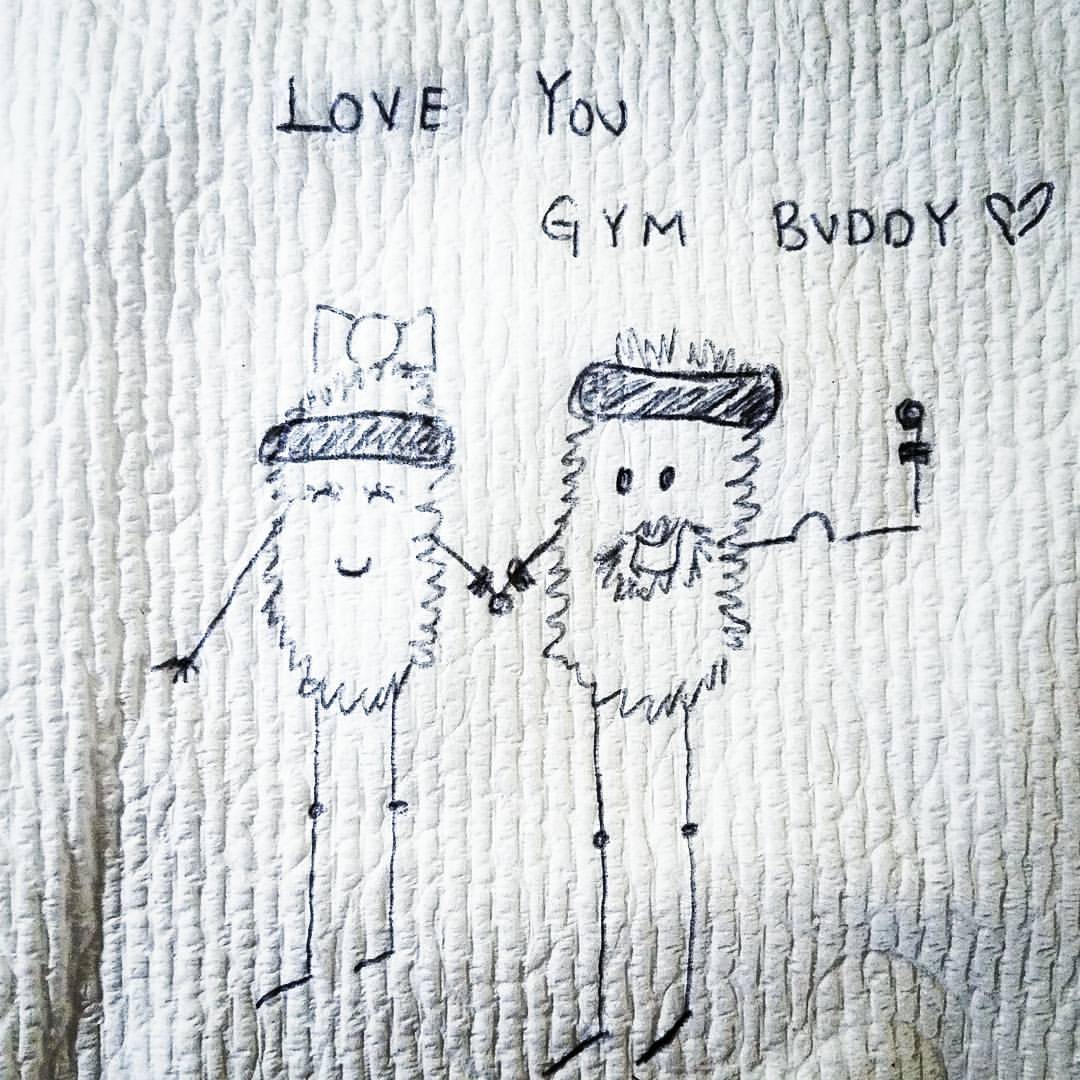 LOVE YOU
GYM BUDDY ♡